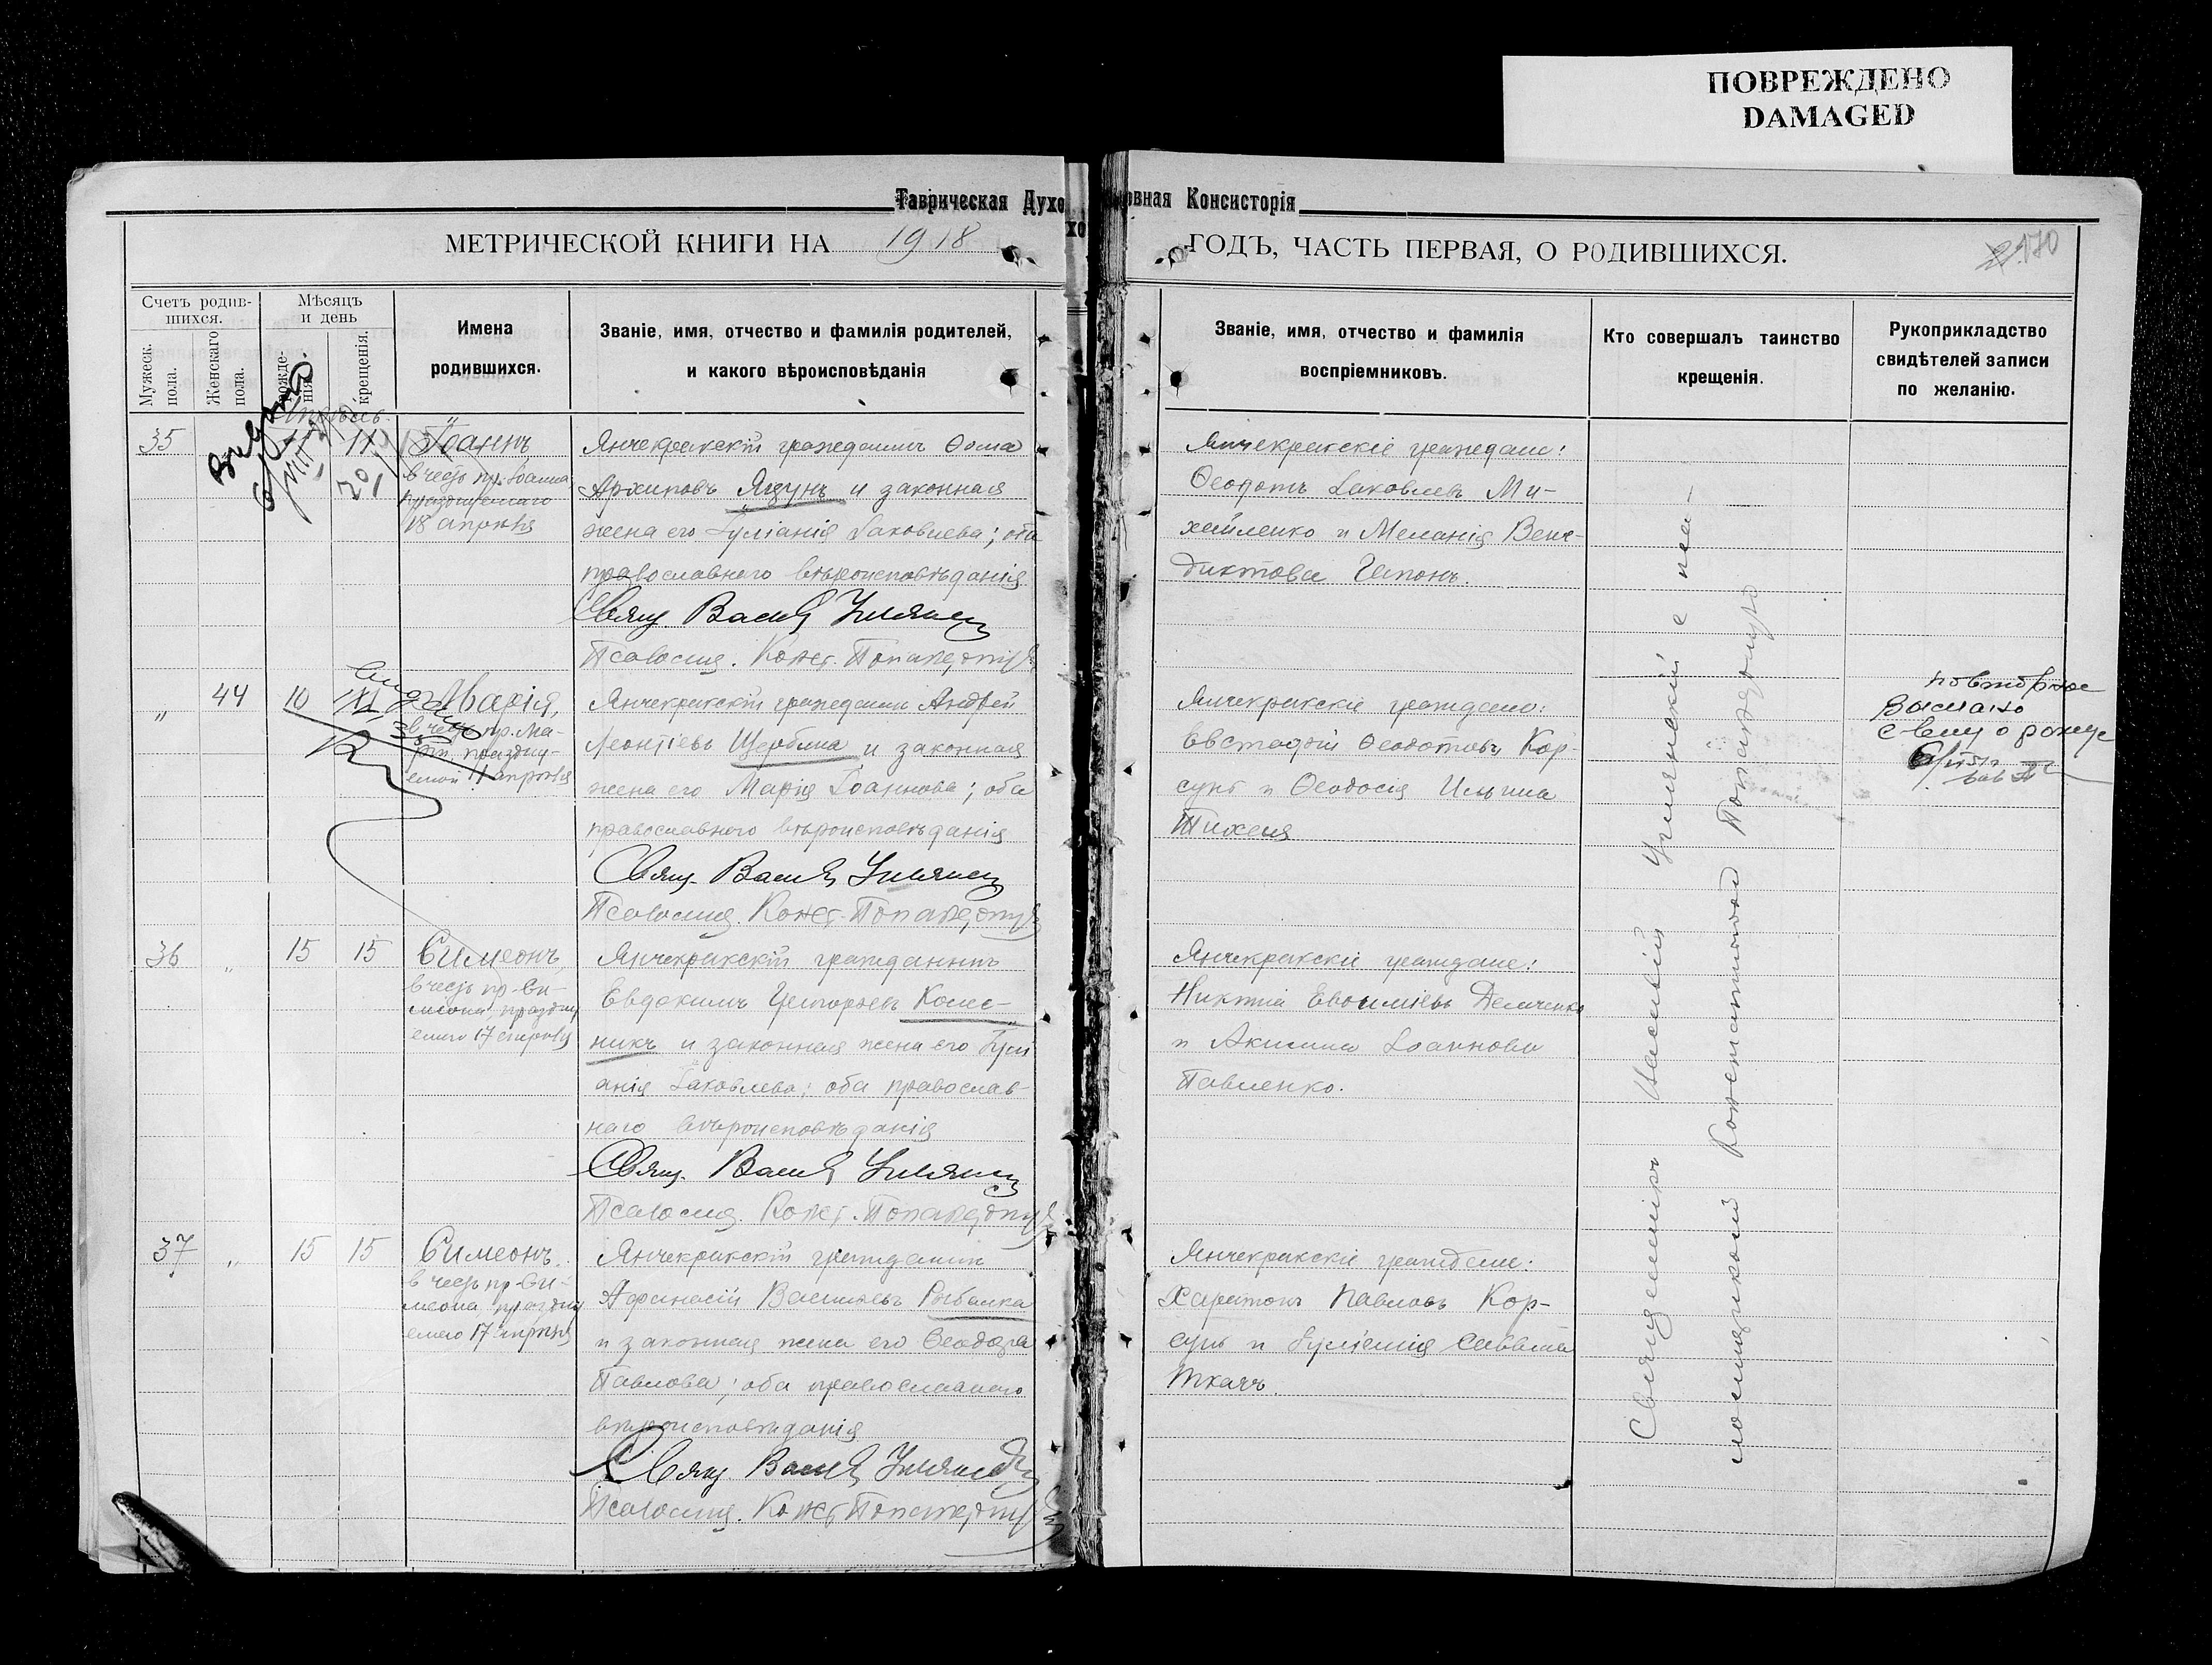 ПОВРЕЖДЕНО
DAMAGED
Таврическая Духовная Консисторія
МЕТРИЧЕСКОЙ КНИГИ НА 1918 ГОДЪ, ЧАСТЬ ПЕРВАЯ, О РОДИВШИХСЯ.
170
Счетъ родив-
шихся.
Мужеск. пола.
Женскаго пола.
Мѣсяцъ
и день
рожде-
нія.
крещенія.
Имена
родившихся.
Званіе, имя, отчество и фамилія родителей,
и какого вѣроисповѣданія
Званіе, имя, отчество и фамилія
воспріемниковъ.
Кто совершалъ таинство
крещенія.
Рукоприкладство
свидѣтелей записи
по желанію.
35
11
11
Іоаннъ
в честь пр. Іоанна
18 апрѣля
Янчекракскій гражданинъ Ѳома
Архиповъ Ящунъ и законная
жена его Іуліанія Іаковлева; оба
православнаго вѣроисповѣданія
Свящ. Васил
Псаломщ. Конст.
Янчекракскіе граждане:
Ѳеодотъ Іаковлевъ Ми-
хайленко и Меланія Вене-
диктова Гапонъ.
„
44
10
Марія,
в честь пр. Ма-
ріи, праздну-
емой 11 апрѣля
Янчекракскій гражданинъ Андрей
Леонтіевъ Щербина и законная
жена его Марія Іоаннова; оба
православнаго вѣроисповѣданія
Свящ. Васил
Псаломщ. Конст.
Янчекракскіе граждане:
Евстафій Ѳеодотовъ Кор-
сунъ и Ѳеодосія Ильина
Тихая
повторное
выслано
36
„
15
15
Симеонъ,
в честь пр. Си-
меона, праздну
емаго 17 апрѣля
Янчекракскій гражданинъ
Евдокимъ Григорьевъ Колес-
никъ и законная жена его Іулі
анія Іаковлева; оба православ-
наго вѣроисповѣданія
Свящ. Васил
Псаломщ. Конст.
Янчекракскіе граждане:
Никита Евѳиміевъ Демченко
и Акилина Іоаннова
Павленко.
37
„
15
15
Симеонъ.
в честь пр. Си-
меона праздну
емаго 17 апрѣля
Янчекракскій гражданинъ
Афанасій Васильевъ Рыбалка
и законная жена его Ѳеодора
Павлова; оба православнаго
вѣроисповѣданія
Свящ. Васил
Псаломщ. Конст.
Янчекракскіе граждане:
Харитонъ Павловъ Кор-
сунъ и Іуліанія Саввина
Ткачъ.
Священникъ Василій
Константинъ